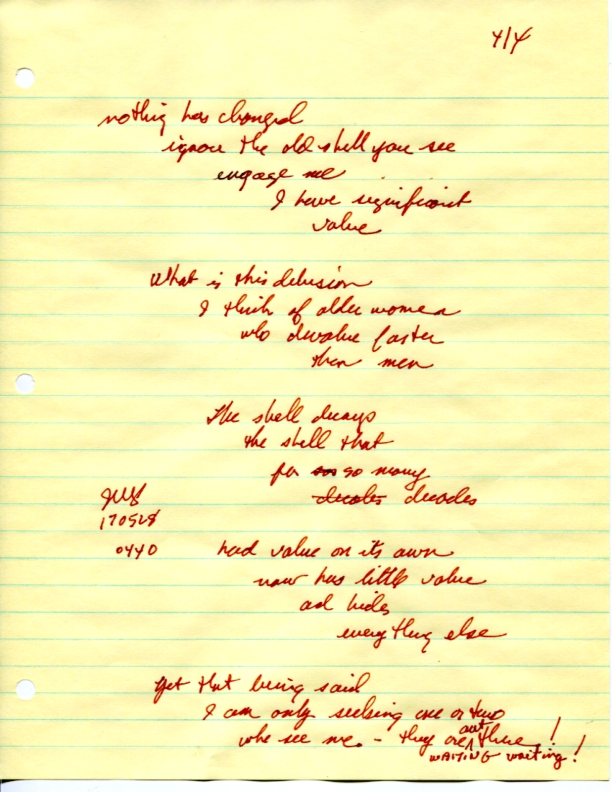 4/4
nothing has changed
ignore the old shell you see
engage me
I have significant
value
What is this delusion
I think of older women
who devalue faster
than men
The shell decays
the shell that
for so many
decades
170528
0440
had value on its own
now has little value
and hides
everything else
yet that being said
I am only seeking one or two
who see me. - they are out there,!
WAITING waiting!